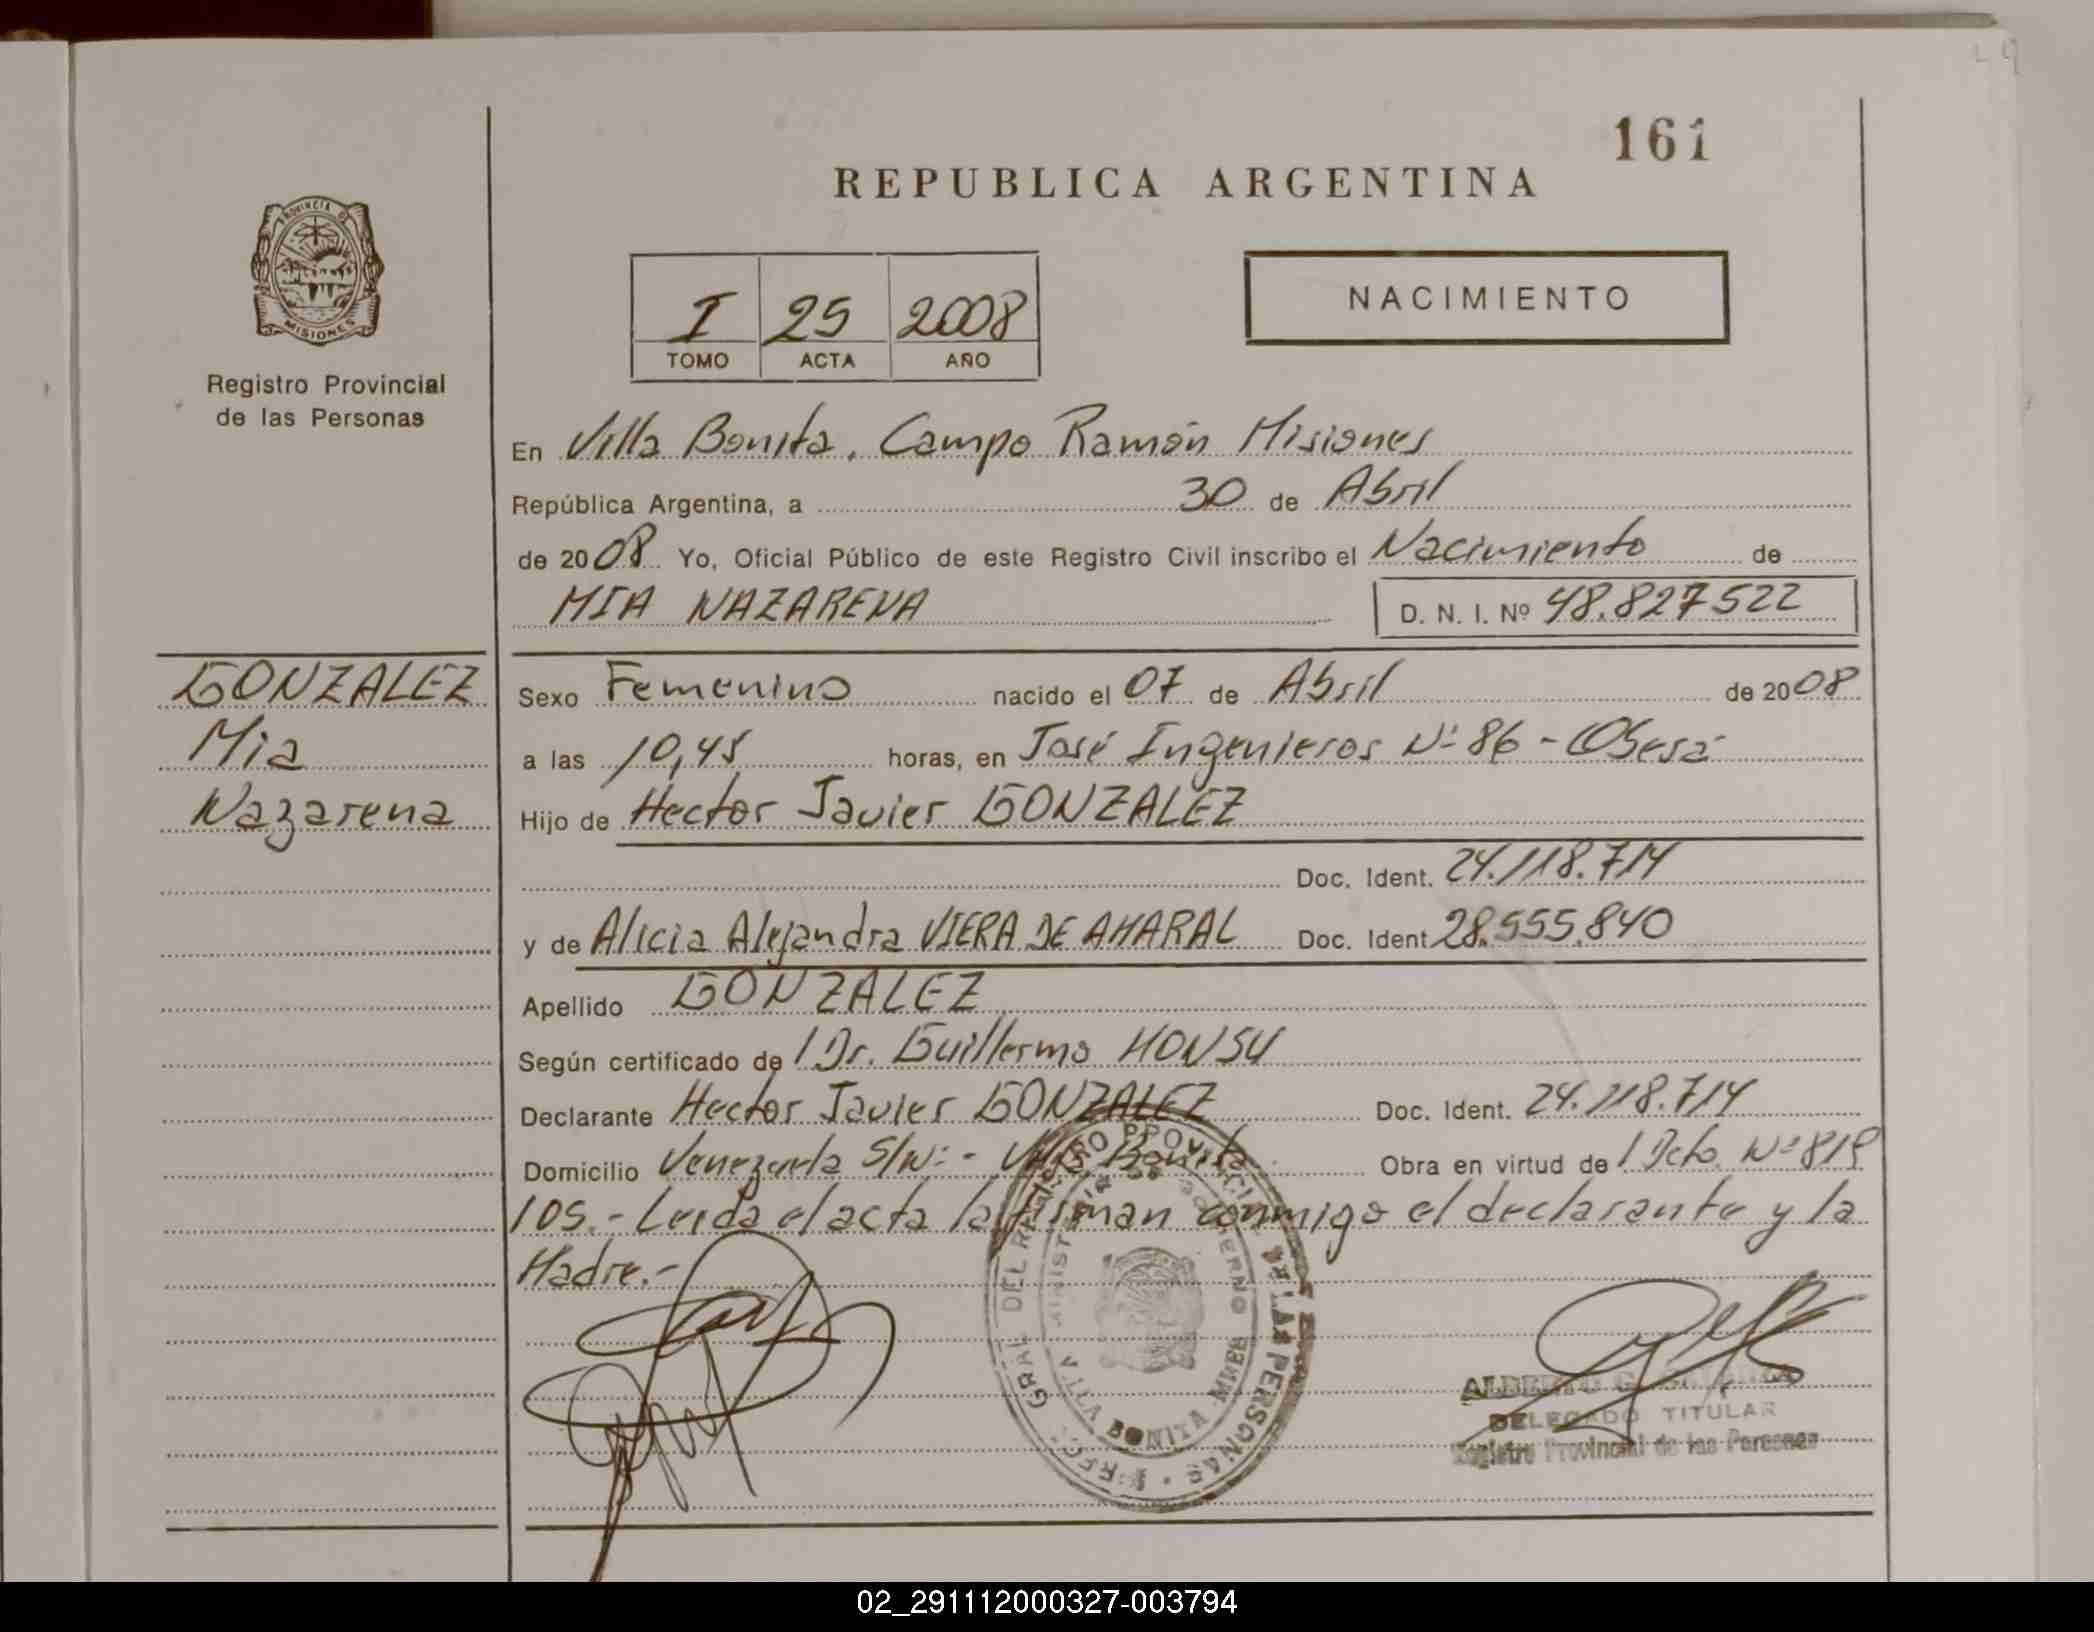 161
REPUBLICA ARGENTINA
PROVINCIA DE
MISIONES
Registro Provincial
de las Personas
NACIMIENTO
I 25 2008
TOMO ACTA AÑO
En Villa Bonita. Campo Ramón Misiones
República Argentina, a 30 de Abril
de 2008 Yo, Oficial Público de este Registro Civil inscribo el Nacimiento de
MIA NAZARENA D. N. I. Nº 48.827522
GONZALEZ
Mia
Nazarena
Sexo Femenino nacido el 07 de Abril de 2008
a las 10,45 horas, en José Ingenieros Nº 86 - Oberá
Hijo de Hector Javier GONZALEZ
Doc. Ident. 24.118.714
y de Alicia Alejandra VIERA DE AMARAL Doc. Ident 28.555.840
Apellido GONZALEZ
Según certificado de l Dr. Guillermo HONSU
Declarante Hector Javier GONZALEZ Doc. Ident. 24.118.714
Domicilio Venezuela S/Nº - Villa Bonita Obra en virtud de l Dcto. Nº 819
105.- Leida el acta la firman conmigo el declarante y la
Madre.-
DELEGADO TITULAR
Registro Provincial de las Personas
GRAL DEL REGISTRO PROVINCIAL DE LAS PERSONAS
VILLA BONITA
02_291112000327-003794